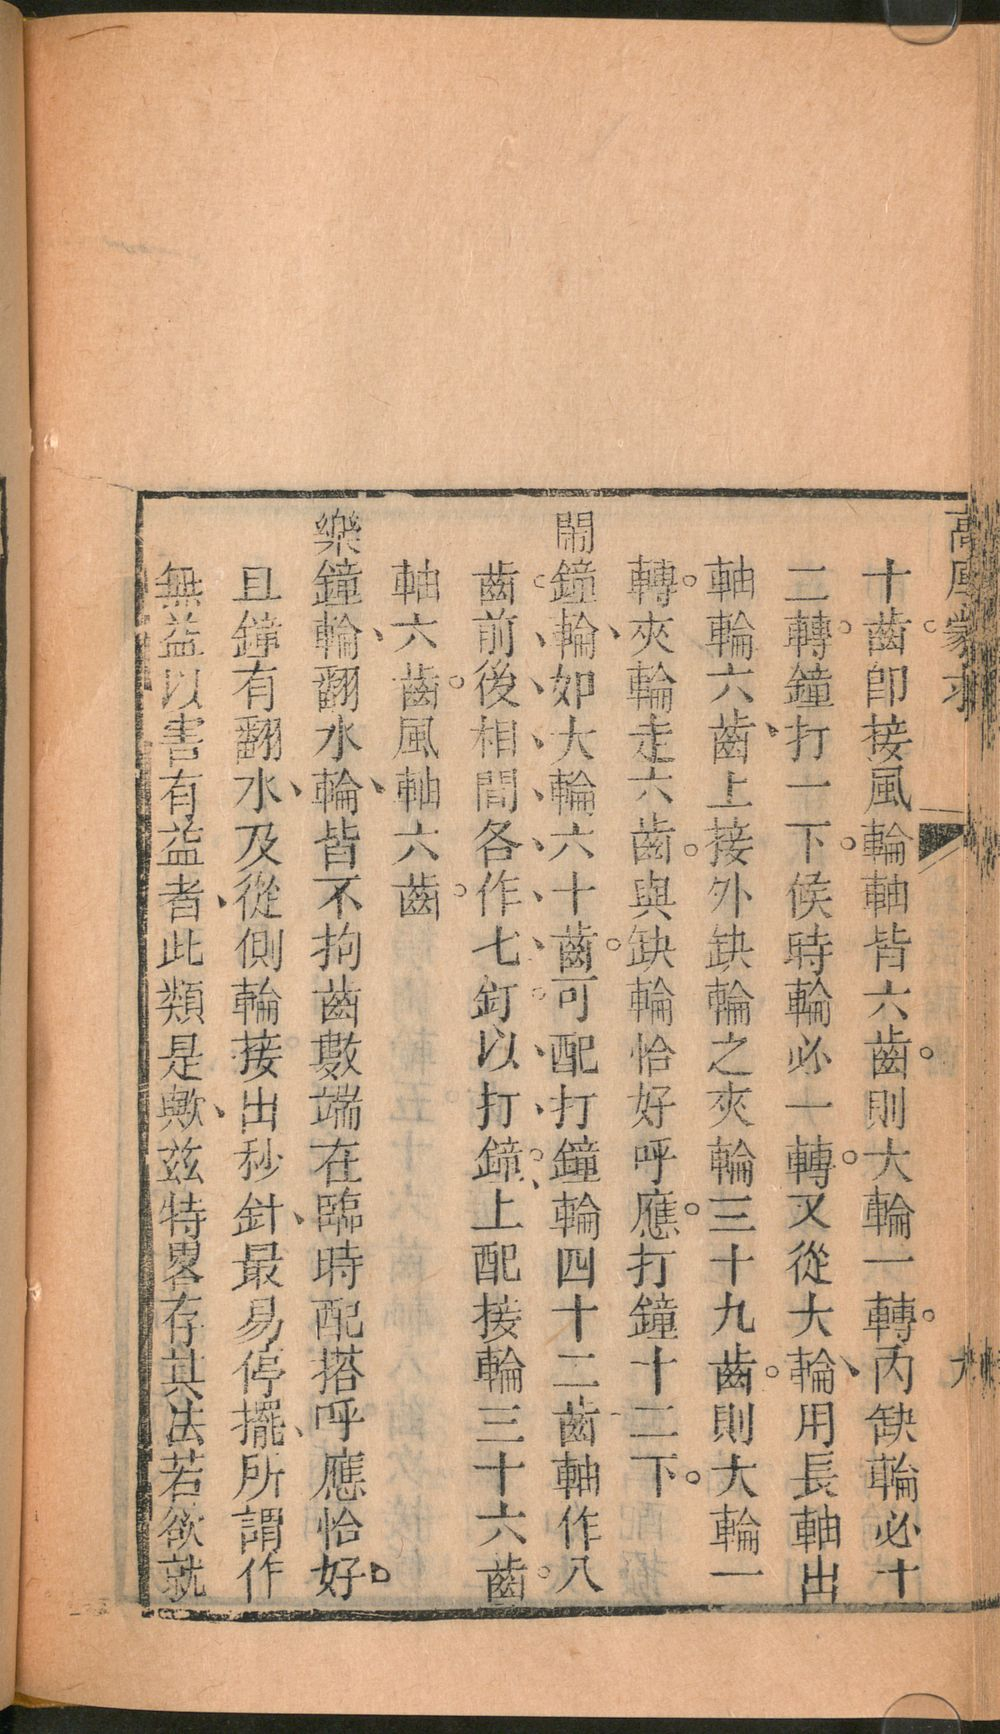 高厚蒙求
十齒卽接風輪軸皆六齒。則大輪一轉。丙缺輪必十
二轉。鐘打一下。候時輪必一轉。又從大輪、用長軸出
軸輪六齒、上接外缺輪之夾輪三十九齒。則大輪一
轉。夾輪走六齒。與缺輪恰好呼應。打鐘十二下。
鬧鐘輪、如大輪六十齒。可配打鐘輪四十二齒軸作八
齒。前、後、相、間、各、作、七、釘。以、打、鐘。、上配接輪三十六齒。
軸六齒。風軸六齒。
樂鐘輪、翻水輪、皆不拘齒數端在臨時配搭呼應恰好。
且鐘有翻水、及從側輪接出秒針、最易停擺、所謂作
無益以害有益者、此類是歟、茲特畧存其法若欲就